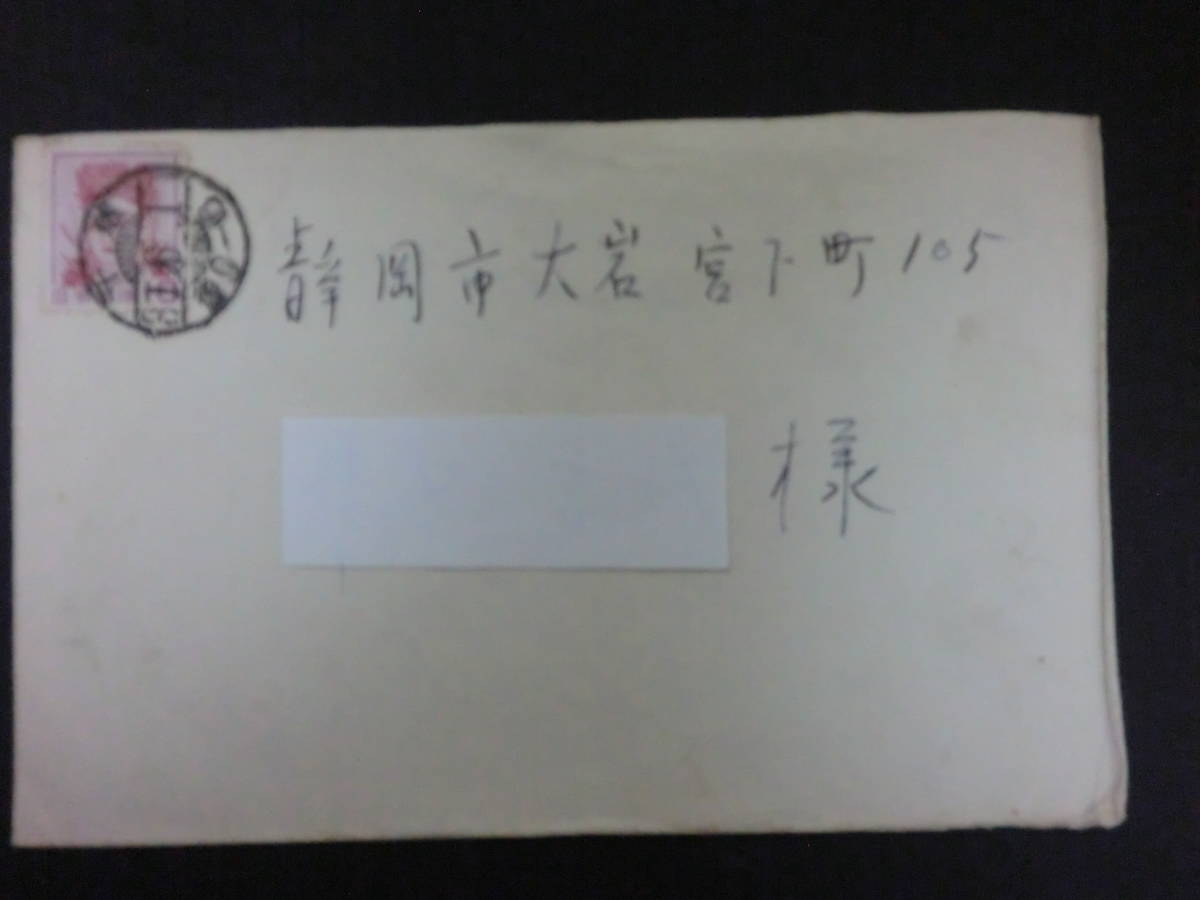 静岡市大岩宮下町105
様